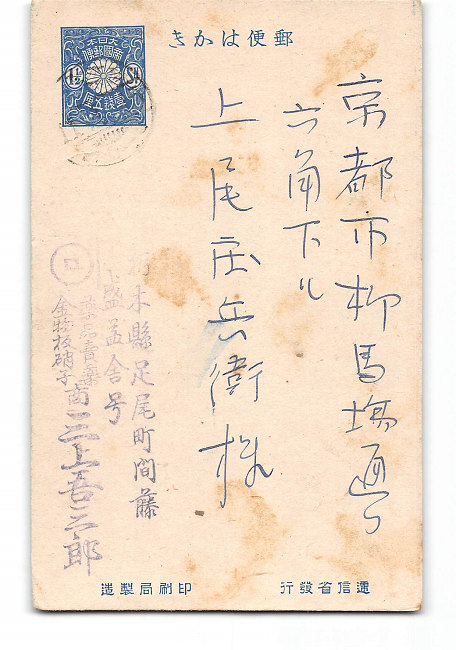 郵便はかき
大日本
帝國郵便
1½ Sn.
壹錢五厘
京都市柳馬場通り
六角下ル
上尾庄兵衛様
栃木縣足尾町間藤
盛益舎号
賣藥
金物板硝子
商 三上吾三郎
逓信省發行
印刷局製造